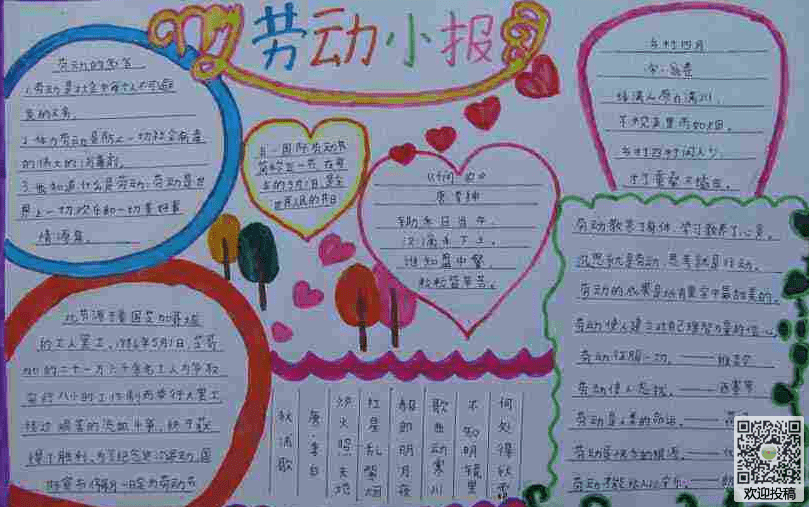 劳动小报
劳动的名言
1.劳动是社会中每个人不可避
免的义务。
2.体力劳动是防止一切社会病毒
的伟大的消毒剂。
3.我知道什么是劳动:劳动是世
界上一切欢乐和一切美好事
情源泉。
五一国际劳动节
简称五一节,在每
年的5月1日,是全
世界人民的节日
《悯农》
唐 李绅
锄禾日当午,
汗滴禾下土。
谁知盘中餐,
粒粒皆辛苦。
乡村四月
绿满山原白满川,
子规声里雨如烟。
乡村四月闲人少,
才了蚕桑又插田。
此节源于美国芝加哥城
的工人罢工,1886年5月1日,芝加
哥的二十一万六千余名工人为争取
实行八小时工作制而举行大罢工
经过艰苦的流血斗争,终于获
得了胜利。为了纪念这次运动,国
秋浦歌
唐·李白
炉火照天地
红星乱紫烟
赧郎明月夜
歌曲动寒川
不知明镜里
何处得秋霜
劳动教养了身体,学习教养了心灵。
沉思就是劳动,思考就是行动。
劳动的成果是所有果实中最甜美的。
劳动使人建立对自己理智力量的信心。
劳动征服一切。
劳动使人忘忧。——西塞罗
劳动是人类的命运。
欢迎投稿